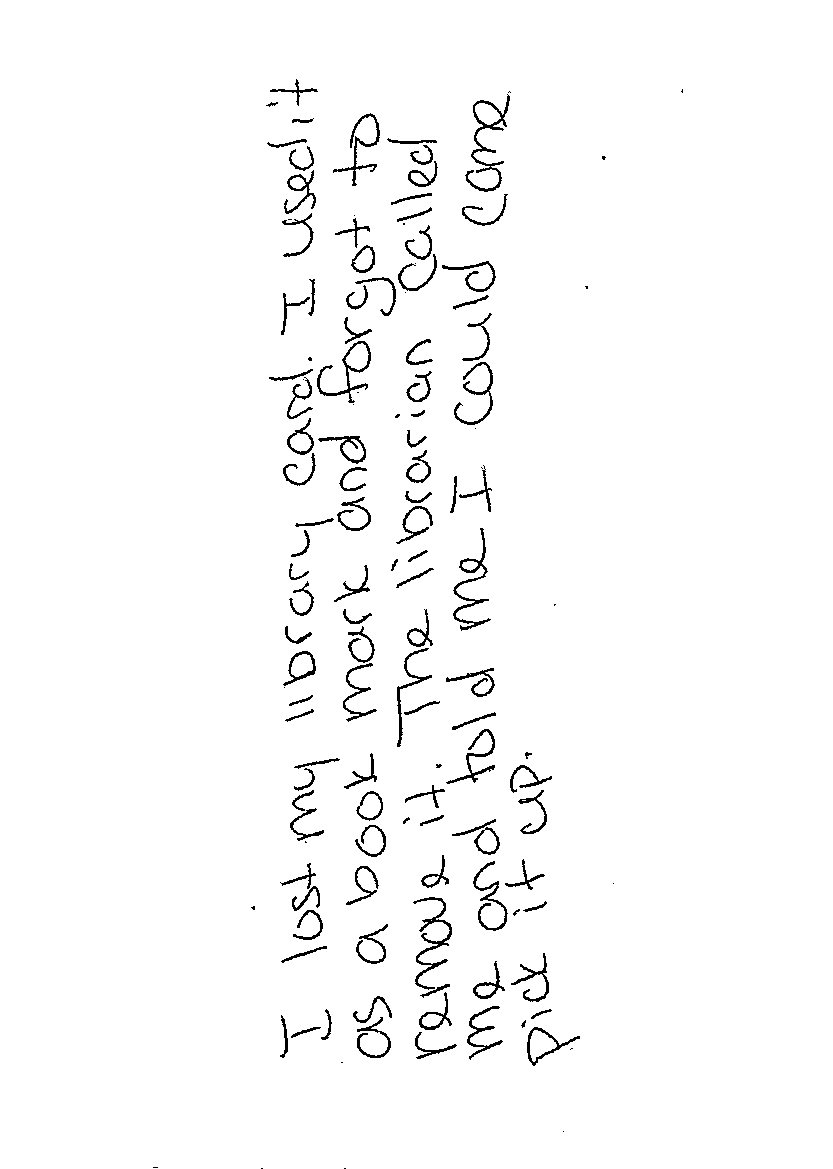 I lost my library card. I used it
as a book mark and forgot to
remove it. The librarian called
me and told me I could come
pick it up.